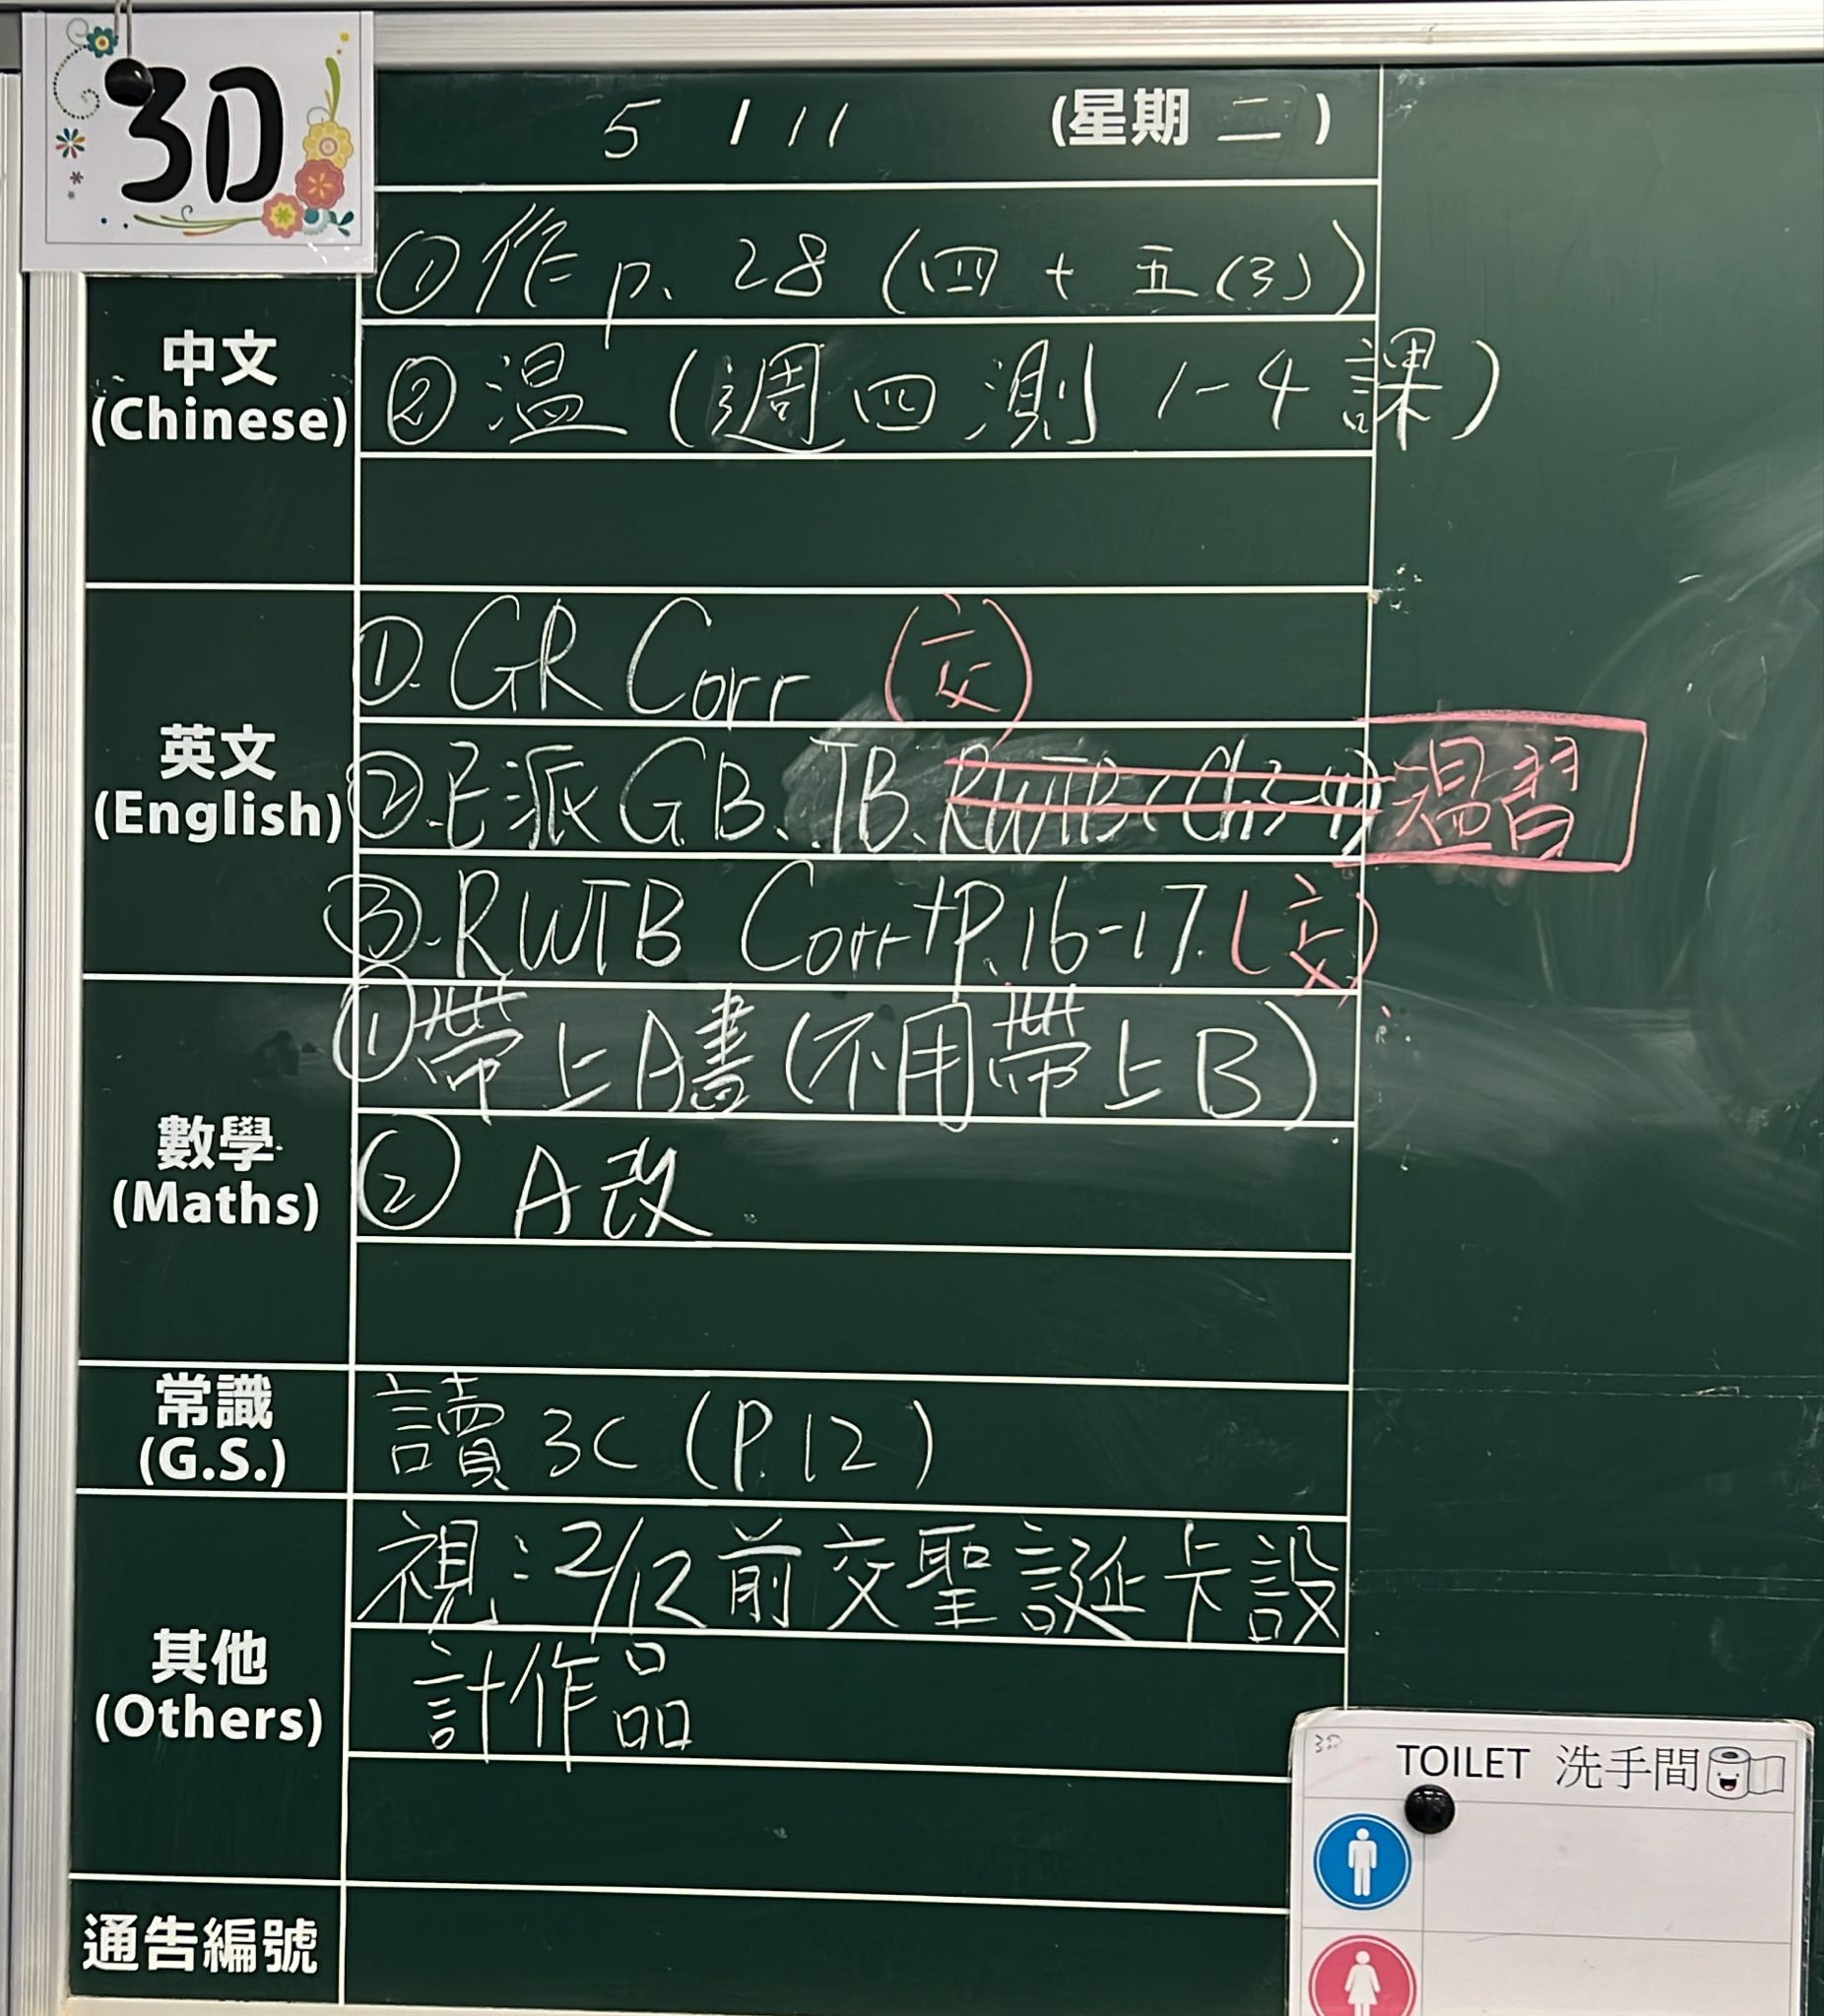 3D
5 / 11 (星期 二 )
中文
(Chinese)
① 作 p. 28 (四 + 五 (3))
② 温 (週四測 1-4 課)
英文
(English)
①. GR Corr (交)
②. 已派 GB、TB、RWTB (Ch.3-4) 温習
③. RWTB Corr+P.16-17. (交)
數學
(Maths)
① 帶上A書 (不用帶上B)
② A改
常識
(G.S.)
讀 3C (P.12)
其他
(Others)
視：2/12前交聖誕卡設
計作品
通告編號
3D
TOILET 洗手間